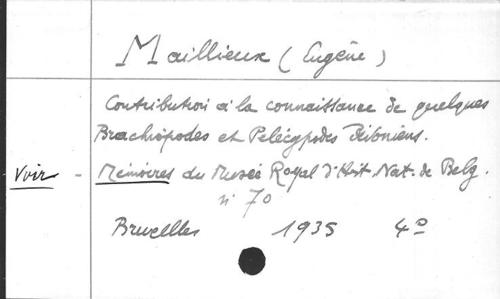 Maillieux (Eugène)
Contribution à la connaissance de quelques
Brachiopodes et Pélécypodes Dévoniens.
Voir - Mémoires du Musée Royal d'Hist. Nat. de Belg.
n° 70
Bruxelles 1935 4°